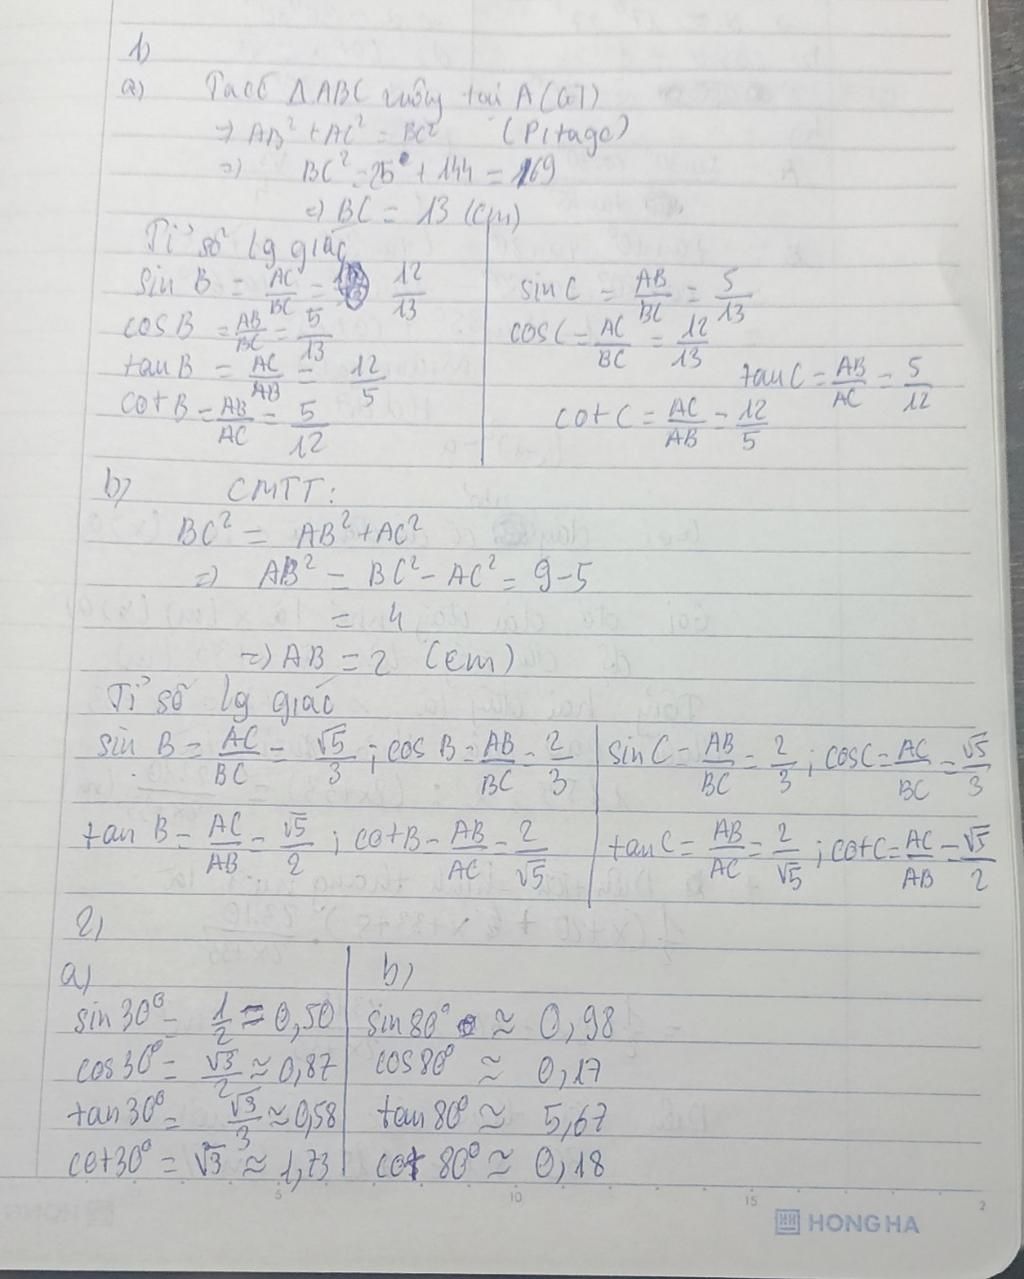 1)
a) Ta có ΔABC vuông tại A (GT)
=> AB² + AC² = BC² (Pitago)
=> BC² = 25 + 144 = 169
=> BC = 13 (cm)
Tỉ số lg giác
sin B = AC/BC = 12/13
cos B = AB/BC = 5/13
tan B = AC/AB = 12/5
cot B = AB/AC = 5/12
sin C = AB/BC = 5/13
cos C = AC/BC = 12/13
tan C = AB/AC = 5/12
cot C = AC/AB = 12/5
b) CMTT:
BC² = AB² + AC²
=> AB² = BC² - AC² = 9 - 5
= 4
=> AB = 2 (cm)
Tỉ số lg giác
sin B = AC/BC = √5/3 ; cos B = AB/BC = 2/3
tan B = AC/AB = √5/2 ; cot B = AB/AC = 2/√5
sin C = AB/BC = 2/3 ; cos C = AC/BC = √5/3
tan C = AB/AC = 2/√5 ; cot C = AC/AB = √5/2
2)
a)
sin 30° = 1/2 = 0,50
cos 30° = √3/2 ≈ 0,87
tan 30° = √3/3 ≈ 0,58
cot 30° = √3 ≈ 1,73
b)
sin 80° ≈ 0,98
cos 80° ≈ 0,17
tan 80° ≈ 5,67
cot 80° ≈ 0,18
5 10 15 2
HONG HA